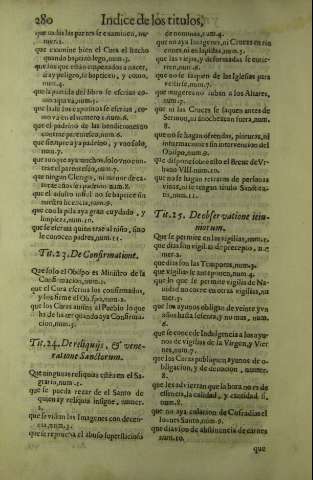 280 Indice de los titulos,
que todas las partes se examinen, nu-
mer.2.
que examine bien el Cura el hecho
quando baptizo lego, num.3.
que los que estan empeçados a nacer,
si ay peligro, se baptizen, y como,
num.4.
que la partida del libro se escriua co-
mo aqui va, num.5.
que la de los expositos se escriua, co-
mo va en el numero 6. num.6.
que el padrino de las bendiciones no
contrae parentesco, num.6.
que siempre aya padrino, y vno solo,
num.7.
que aunque aya muchos, solo vno con-
trae el parentesco, num.7.
que ningun Clerigo, ni menor de ca-
torze años sea padrino num.8.
que el adulto infiel no se baptize sin
nuestra licencia, num.9.
que con la pila aya gran cuydado, y
limpieza, num.10.
que se escriua quien trae al niño, si no
se conocen padres, num.11.
Tit.23. De Confirmatione.
Que solo el Obispo es Ministro de la
Confirmacion, num.1.
que el Cura escriua los confirmados,
y los firme el Obispo, num.2.
que los Curas auisen al Pueblo lo que
ha de hazer quando aya Confirma-
cion, num.3.
Tit.24. De reliquijs, & vene-
ratione Sanctorum.
Que ningunas reliquias esten en el Sa-
grario, num.1.
que se pueda rezar de el Santo de
quien ay reliquia insigne, numer.
2.
que se vistan las Imagenes con decen-
cia, num.3.
que se reprueua el abuso supersticioso
de nominas, num.4.
que no aya Imagenes, ni Cruces en rin-
cones, ni en lapidas, num.5.
que las viejas, y deformadas se entie-
rren, num.6.
que no se saquen de las Iglesias para
vestirse, num.7.
que mugeres no suban a los Altares,
num.7.
que ni las Cruces se saquen antes de
Sermon, ni anochezcan fuera, num.
8.
que no se hagan ofrendas, pinturas, ni
informaciones sin intervencion del
Obispo, num.9.
que dispone sobre esto el Breue de Vr-
bano VIII. num.10.
que no se hagan retratos de personas
viuas, ni se tengan titulo Sanctita-
tis, num.11.
Tit.25. De obseruatione ieiu-
niorum.
Que se permite en las vigilias, num.1.
que dias son vigilias de precepto, nu-
mer.2.
que dias son las Temporas, num.3.
que vigilias se anteponen, num.4.
que lo que se permite vigilia de Na-
uidad no corre en otras vigilias, nu-
mer.5.
que los ayunos obligan de veinte y vn
años hasta sesenta, y no mas, num.
6.
que se concede Indulgencia a los ayu-
nos de vigilias de la Virgen, y Vier-
nes, num.7.
que los Curas publiquen ayunos de o-
bligacion, y de deuocion, numer.
8.
que les aduiertan que la hora no es de
essencia, la calidad, y cantidad si,
num.8.
que no aya colacion de Cofradias el
Iueues Santo, num.9.
que dias son de abstinencia de carnes
num.10.
que